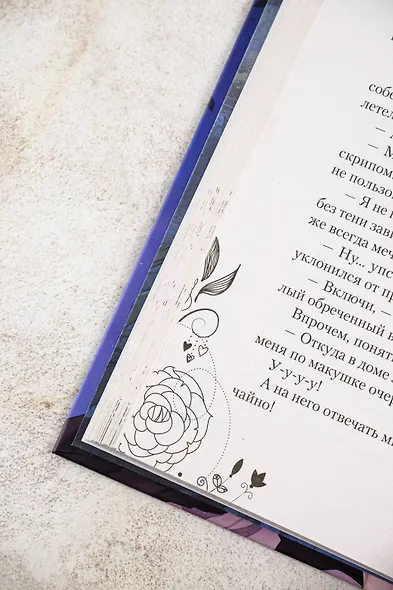 собо
летел
—
— М
скрипом
не пользо
— Я не
без тени зави
же всегда меч
— Ну... упс
уклонился от пр
— Включи, —
лый обреченный в
Впрочем, понят
— Откуда в доме
меня по макушке очер
У-у-у-у!
А на него отвечать м
чайно!